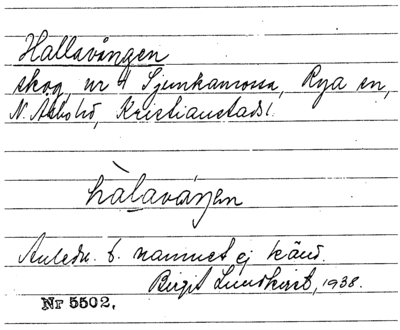 Hallavången
skog nr 4 Sjunkamossa, Rya sn,
N. Åsbo hd, Kristianstads l.
hàlaváŋen
Anledn. t. namnet ej känd.
Birgit Lundkvist, 1938.
Nr 5502.